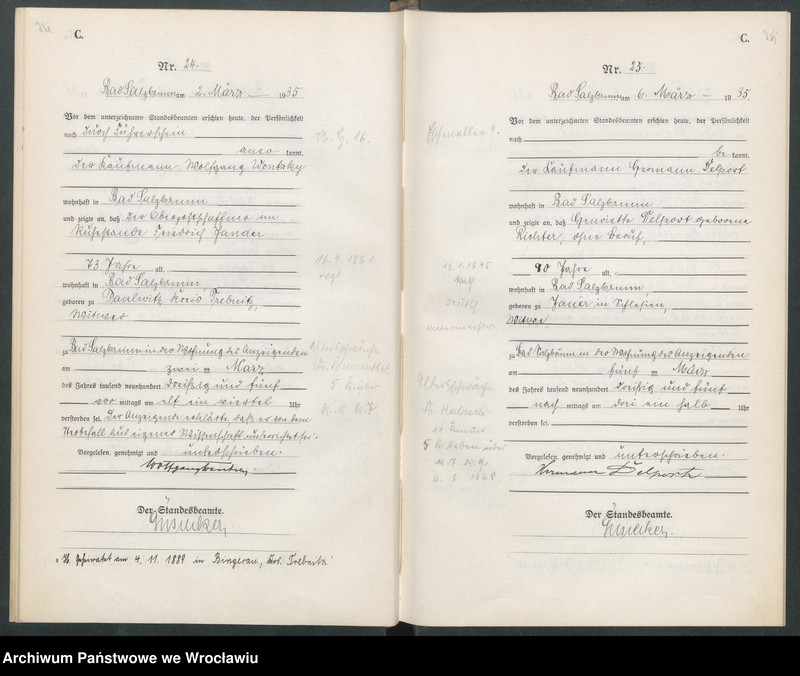 C.
Nr. 24.
Bad Salzbrunn am 2. März 1935.
Vor dem unterzeichneten Standesbeamten erschien heute, der Persönlichkeit
nach durch Führerschein
aner kannt,
der Kaufmann Wolfgang Wentzky
wohnhaft in Bad Salzbrunn
und zeigte an, daß der Oberpostschaffner im
Ruhestande Friedrich Jander
73 Jahre alt,
wohnhaft in Bad Salzbrunn,
geboren zu Paulwitz Kreis Trebnitz,
Witwer
zu Bad Salzbrunn in der Wohnung des Anzeigenden
am zwei ten März
des Jahres tausend neunhundert dreißig und fünf
vor mittags um elf ein viertel Uhr
verstorben sei. Der Anzeigende erklärte, daß er von dem
Sterbefall aus eigener Wissenschaft unterrichtet sei.
Vorgelesen, genehmigt und unterschrieben.
Wolfgang Wentzky.
Der Standesbeamte.
St. G. 16.
16.9.1861.
Altersschwäche
5 Kinder
geheiratet am 4. 11. 1889 in Bingerau, Krs. Trebnitz
C.
Nr. 25
Bad Salzbrunn am 6. März 1935.
Vor dem unterzeichneten Standesbeamten erschien heute, der Persönlichkeit
nach
be kannt,
der Kaufmann Hermann Delport
wohnhaft in Bad Salzbrunn
und zeigte an, daß Henriette Delport geborene
Richter, ohne Beruf,
90 Jahre alt,
wohnhaft in Bad Salzbrunn,
geboren zu Jauer in Schlesien,
Witwe
zu Bad Salzbrunn in der Wohnung des Anzeigenden
am fünf ten März
des Jahres tausend neunhundert dreißig und fünf
nach mittags um drei ein halb Uhr
verstorben sei.
Vorgelesen, genehmigt und unterschrieben.
Hermann Delport
Der Standesbeamte.
Altersschwäche
11 Kinder
Archiwum Państwowe we Wrocławiu